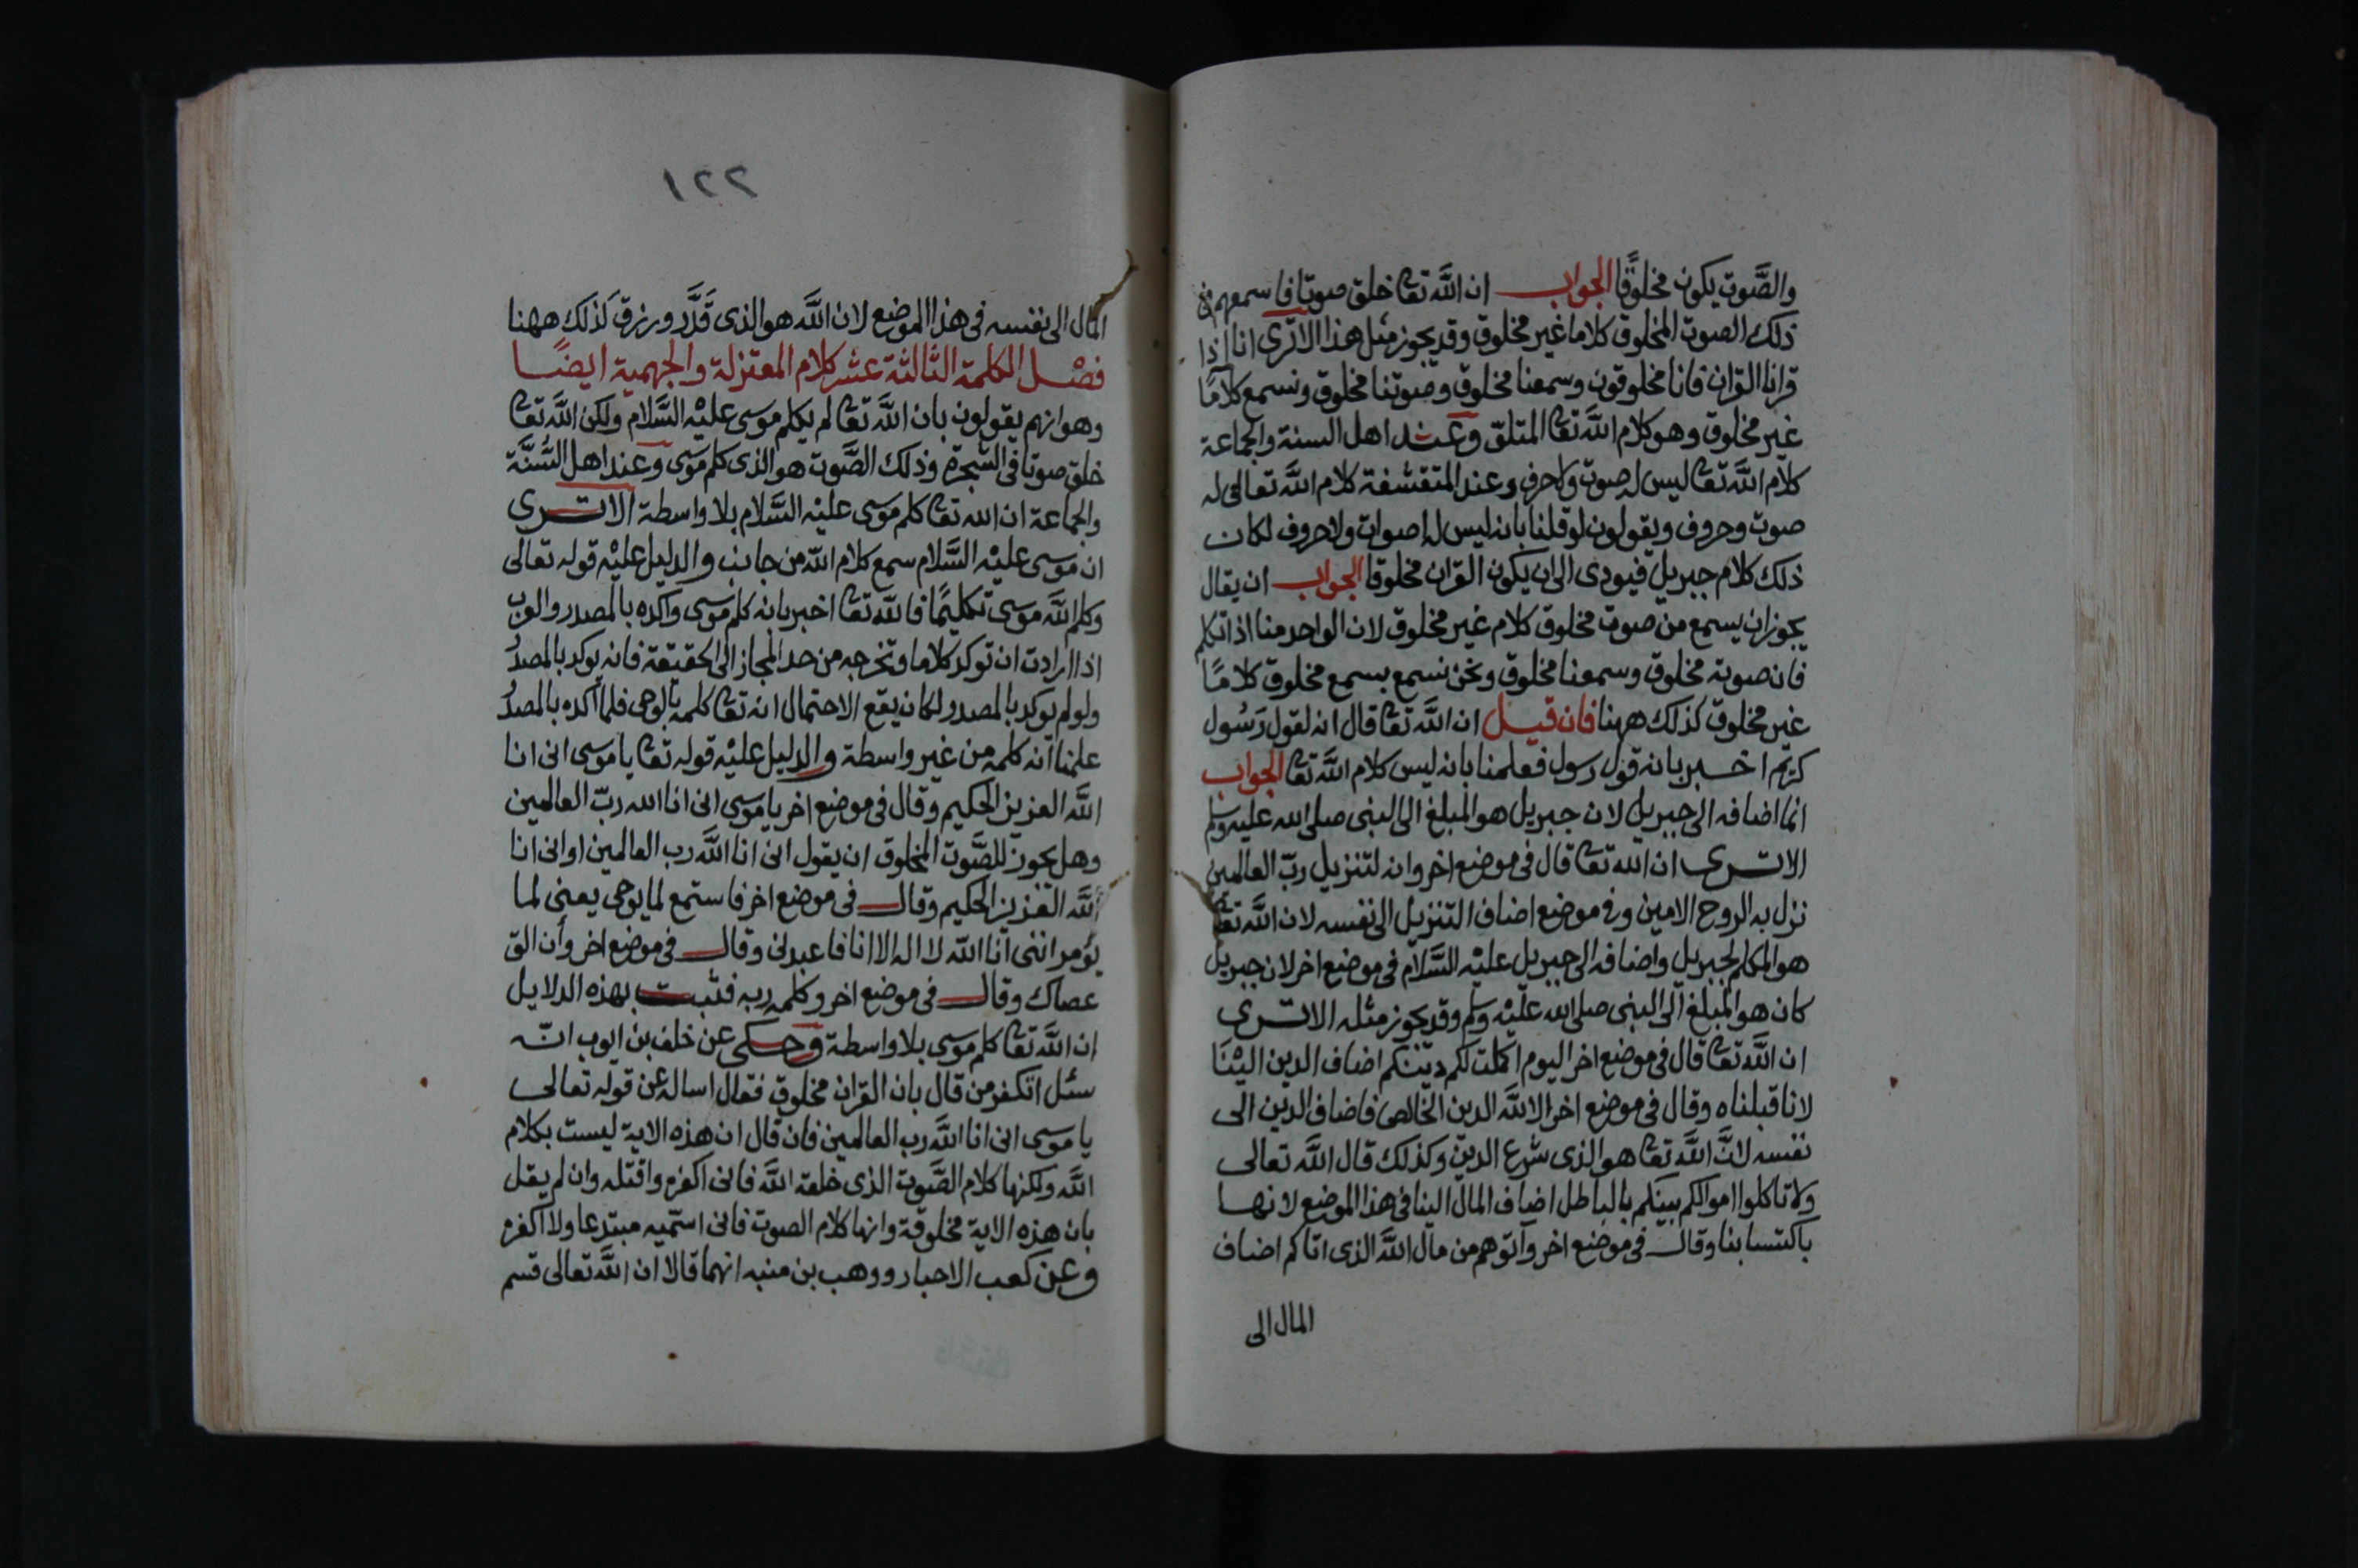 والصَّوت يكون مخلوقًا الجواب ان اللَّه تعا خلق صوتا فاسمعهم من
ذلك الصوت المخلوق كلاما غير مخلوق وقد يجوز مثل هذا الا ترى انا اذا
قرانا القران فانا مخلوقون وسمعنا مخلوق وصوتنا مخلوق ونسمع كلامًا
غير مخلوق وهو كلام اللَّه تعا المتلوّ وعند اهل السنة والجماعة
كلام اللَّه تعا ليس له صوت ولا حرف وعند المتقشفة كلام اللَّه تعالى له
صوت وحروف ويقولون لو قلنا بانه ليس له اصوات ولا حروف لكان
ذلك كلام جبريل فيودى الى ان يكون القران مخلوقا الجواب ان يقال
يجوز ان يسمع من صوت مخلوق كلام غير مخلوق لان الواحد منا اذا تكلم
فان صوته مخلوق وسمعنا مخلوق ونحن نسمع بسمع مخلوق كلامًا
غير مخلوق كذلك ههنا فان قيل ان اللَّه تعا قال انه لقول رَسُول
كريم اخبر بانه قول رسول فعلمنا بانه ليس كلام اللَّه تعا الجواب
انما اضافه الى جبريل لان جبريل هو المبلغ الى النبى صلى الله عليه وسلم
الا ترى ان الله تعا قال فى موضع اخر وانه لتنزيل ربّ العالمين
نزل به الروح الامين وفى موضع اضاف التنزيل الى نفسه لان اللَّه تعا
هو المكلم لجبريل واضافه الى جبريل عليْه السَّلام فى موضع اخر لان جبريل
كان هو المبلغ الى النبى صلى الله عليْه وسلم وقد يجوز مثله الا ترى
ان اللَّه تعا قال فى موضع اخر اليوم اكملت لكم دينكم اضاف الدين اليْنَا
لانا قبلناه وقال فى موضع اخر الا للَّه الدين الخالص فاضاف الدين الى
نفسه لانَّ اللَّه تعا هو الذى شرع الدين وكذلك قال اللَّه تعالى
ولا تاكلوا اموالكم بينكم بالباطل اضاف المال الينا فى هذا الموضع لانها
باكتسابنا وقال فى موضع اخر وآتوهم من مال اللَّه الذى اتاكم اضاف
المال الى
١٢٢
المال الى نفسه فى هذا الموضع لان اللَّه هو الذى قَدَّر ورزق كذلك ههنا
فصْل الكلمة الثالثة عشر كلام المعتزلة والجهمية ايضًا
وهو انهم يقولون بان اللَّه تعا لم يكلم موسى عليْه السَّلام ولكن اللَّه تعا
خلق صوتا فى الشجرة وذلك الصَّوت هو الذى كلم موسى وعند اهل السُّنَّة
والجماعة ان الله تعا كلم موسى عليْه السَّلام بلا واسطة الا ترى
ان موسى عليْه السَّلام سمع كلام اللّه من جانب والدليل عليْه قوله تعالى
وكلم اللَّه موسى تكليمًا فاللَّه تعا اخبر بانه كلم موسى واكده بالمصدر والعرب
اذا ارادت ان توكد كلاما وتخرجه من حد المجاز الى الحقيقة فانه يوكد بالمصدر
ولو لم يوكد بالمصدر لكان يقع الاحتمال انه تعا كلمه بالوحى فلما اكده بالمصدر
علمنا انه كلمه من غير واسطة والدليل عليْه قوله تعا يا موسى انى انا
اللَّه العزيز الحكيم وقال فى موضع اخر يا موسى انى انا الله ربّ العالمين
وهل يجوز للصَّوت المخلوق ان يقول انى انا اللَّه رب العالمين او انى انا
اللَّه العزيز الحكيم وقال فى موضع اخر فاستمع لما يوحى يعنى لما
يؤمر اننى انا اللّه لا اله الا انا فاعبدنى وقال فى موضع اخر وأن الق
عصاك وقال فى موضع اخر وكلمه ربه فثبت بهذه الدلايل
ان اللَّه تعا كلم موسى بلا واسطة وحكى عن خلف بن ايوب انّه
سئل اتكفر من قال بان القران مخلوق فقال اساله عن قوله تعالى
يا موسى انى انا اللَّه رب العالمين فان قال ان هذه الاية ليست بكلام
اللَّه ولكنها كلام الصَّوت الذى خلقه اللَّه فانى اكفره واقتله وان لم يقل
بان هذه الاية مخلوقة وانها كلام الصوت فانى اسميه مبتدعا ولا اكفره
وعن كعب الاحبار ووهب بن منبه انهما قالا ان اللَّه تعالى قسم